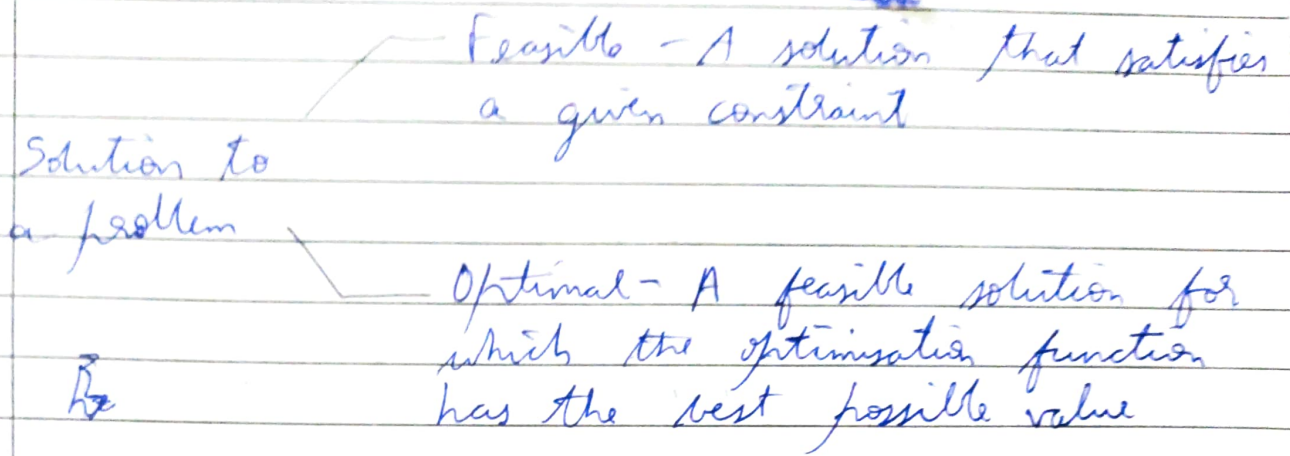 Feasible - A solution that satisfies
a given constraint
Solution to
a problem
Optimal - A feasible solution for
which the optimisation function
has the best possible value